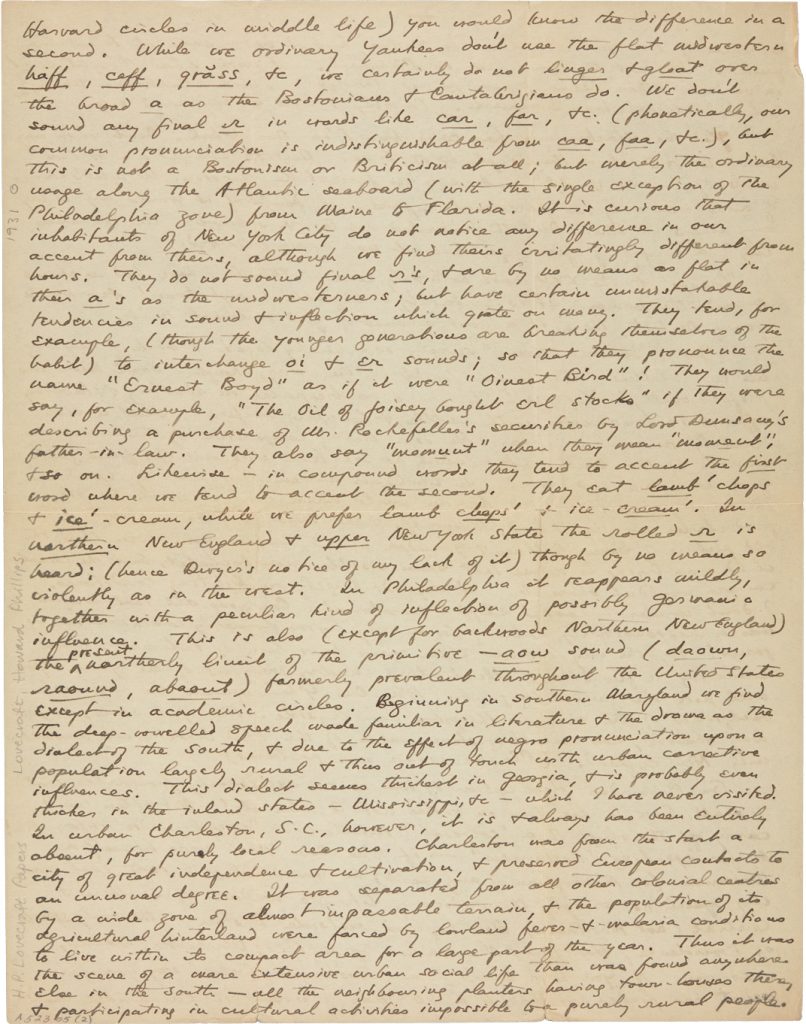 Harvard circles in middle life) you would know the difference in a
second. While we ordinary Yankees don't use the flat midwestern
hăff, căff, grăss, &c, we certainly do not linger & gloat over
the broad a as the Bostonians & Cantabrigians do. We don't
sound any final r in words like car, far, &c. (phonetically, our
common pronunciation is indistinguishable from caa, faa, &c.), but
this is not a Bostonism or Briticism at all; but merely the ordinary
usage along the Atlantic seaboard (with the single exception of the
Philadelphia zone) from Maine to Florida. It is curious that
inhabitants of New York City do not notice any difference in our
accent from theirs, although we find theirs irritatingly different from
hours. They do not sound final r's, & are by no means as flat in
their a's as the midwesterners; but have certain unmistakable
tendencies in sound & inflection which grate on many. They tend, for
example, (though the younger generations are breaking themselves of the
habit) to interchange oi & er sounds; so that they pronounce the
name "Ernest Boyd" as if it were "Oinest Bird"! They would
say, for example, "The Oil of Joisey bought erl stocks" if they were
describing a purchase of Mr. Rockefeller's securities by Lord Dunsany's
father-in-law. They also say "momunt" when they mean "moment",
& so on. Likewise – in compound words they tend to accent the first
word where we tend to accent the second. They eat lamb' chops
& ice'-cream, while we prefer lamb chops' & ice-cream'. In
northern New England & upper New York State the rolled r is
heard; (hence Dwyer's notice of my lack of it) though by no means so
violently as in the west. In Philadelphia it reappears mildly,
together with a peculiar kind of inflection of possibly Germanic
influence. This is also (except for backwoods Northern New England)
the present northerly limit of the primitive – aow sound (daown,
raound, abaout) formerly prevalent throughout the United States
except in academic circles. Beginning in southern Maryland we find
the deep-vowelled speech made familiar in literature & the drama as the
dialect of the South, & due to the effect of negro pronunciation upon a
population largely rural & thus out of touch with urban corrective
influences. This dialect seems thickest in Georgia, & is probably even
thicker in the inland states – Mississippi, &c – which I have never visited.
In urban Charleston, S.C., however, it is & always has been entirely
absent, for purely local reasons. Charleston was from the start a
city of great independence & cultivation, & preserved European contacts to
an unusual degree. It was separated from all other colonial centres
by a wide zone of almost impassable terrain, & the population of its
agricultural hinterland were forced by lowland fever-&-malaria conditions
to live within its compact area for a large part of the year. Thus it was
the scene of a more extensive urban social life than was found anywhere
else in the south – all the neighbouring planters having town-houses there
& participating in cultural activities impossible to a purely rural people.
1931 O
Lovecraft, Howard Phillips
H.P. Lovecraft Papers